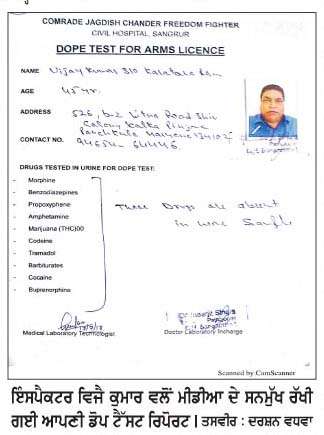 COMRADE JAGDISH CHANDER FREEDOM FIGHTER
CIVIL HOSPITAL, SANGRUR
DOPE TEST FOR ARMS LICENCE
NAME Vijay Kumar S/o
AGE 45 yr.
ADDRESS 526, Road
Colony Kalka Pinjore
Panchkula Haryana 134102
CONTACT NO.
DRUGS TESTED IN URINE FOR DOPE TEST:
- Morphine
- Benzodiazepines
- Propoxyphene
- Amphetamine
- Marijuana (THC)00
- Codeine
- Tramadol
- Barbiturates
- Cocaine
- Buprenorphine
These Drugs are absent
in urine
Medical Laboratory Technologist
Doctor Laboratory Incharge
Scanned by CamScanner
ਇੰਸਪੈਕਟਰ ਵਿਜੈ ਕੁਮਾਰ ਵਲੋਂ ਮੀਡੀਆ ਦੇ ਸਨਮੁੱਖ ਰੱਖੀ
ਗਈ ਆਪਣੀ ਡੋਪ ਟੈੱਸਟ ਰਿਪੋਰਟ। ਤਸਵੀਰ : ਦਰਸ਼ਨ ਵਧਵਾ